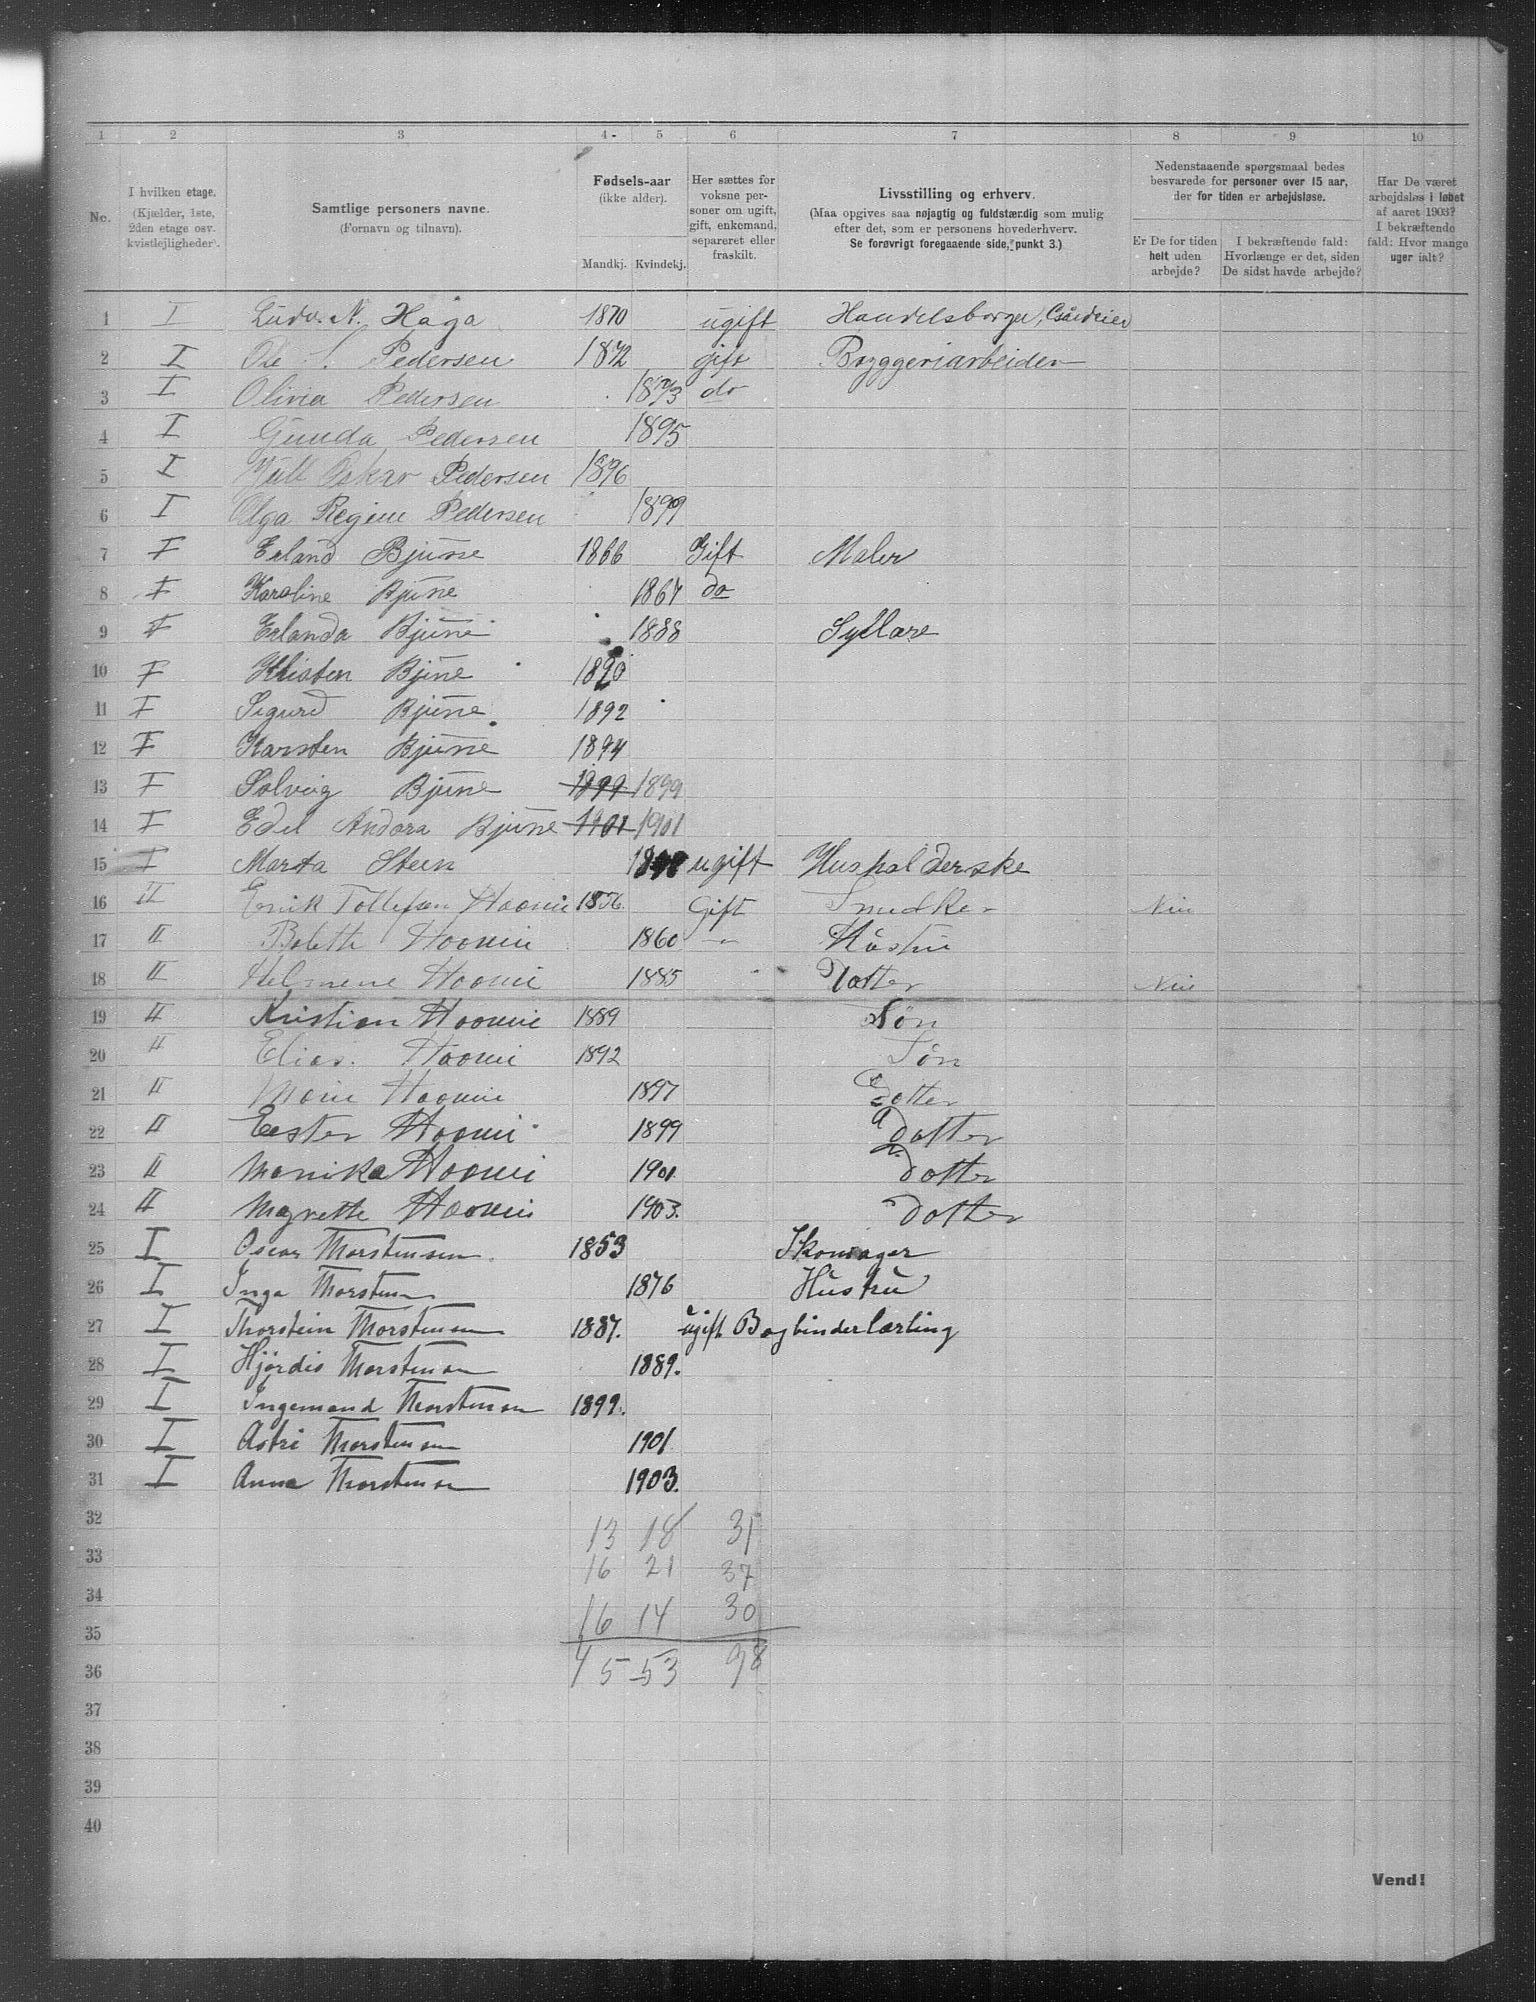 1 2 3 4 5 6 7 8 9 10
No.
I hvilken etage.
(Kjælder, 1ste,
2den etage osv.
kvistlejligheder).
Samtlige personers navne.
(Fornavn og tilnavn).
Fødsels-aar
(ikke alder).
Mandkj. Kvindekj.
Her sættes for
voksne per-
soner om ugift,
gift, enkemand,
separeret eller
fraskilt.
Livsstilling og erhverv.
(Maa opgives saa nøjagtig og fuldstærdig som mulig
efter det, som er personens hovederhverv.
Se forøvrigt foregaaende side, punkt 3.)
Nedenstaaende spørgsmaal bedes
besvarede for personer over 15 aar,
der for tiden er arbejdsløse.
Er De for tiden
helt uden
arbejde?
I bekræftende fald:
Hvorlænge er det, siden
De sidst havde arbejde?
Har De været
arbejdsløs i løbet
af aaret 1903?
I bekræftende
fald: Hvor mange
uger ialt?
1 I Ludv. N. Haga 1870 ugift Handelsborger, Gårdeier
2 I Ole L. Pedersen 1872 gift Bryggeriarbeider
3 I Olivia Pedersen 1873 do
4 I Gunda Pedersen 1895
5 I Oskar Pedersen 1896
6 I Olga Regine Pedersen 1899
7 I Erland Bjune 1866 Gift Maler
8 I Karoline Bjune 1867 do
9 I Erlanda Bjune 1888 Syllære
10 I Kristen Bjune 1890
11 I Sigurd Bjune 1892
12 I Karsten Bjune 1894
13 I Solveig Bjune 1899 1899
14 I Edel Andora Bjune 1901 1901
15 I Marta Steen ugift Husholderske
16 II Enik Tollefsen Haavvi 1856 Gift Snedker Nei
17 II Bolette 1860 -"- Hustru
18 II Helmine 1885 Datter Nei
19 II Kristian 1889 Søn
20 II Elias. 1892 Søn
21 II Marie 1897 Dotter
22 II Eester 1899 Dotter
23 II Monika 1901 Dotter
24 II Magrette 1903. Dotter
25 I Oscar Thorstensen. 1853 Skomager
26 I Inga Thorstensen 1876 Hustru
27 I Thorstein Thorstensen 1887. ugift Bogbinderlærling
28 I Hjørdis Thorstensen 1889.
29 I Ingemand Thorstensen 1899.
30 I Astri Thorstensen 1901
31 I Anna Thorstensen 1903.
32 13 18 31
33 16 21 37
34
35 16 14 30
36 45 53 98
37
38
39
40
Vend!